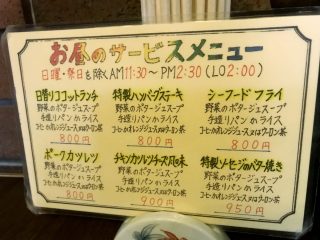 お昼のサービスメニュー
日曜・祭日を除くAM11:30～PM2:30(LO2:00)
日替りココットランチ
野菜のポタージュスープ
手造りパンorライス
コーヒーorオレンジジュースorウーロン茶
800円
特製ハンバーグステーキ
野菜のポタージュスープ
手造りパンorライス
コーヒーorオレンジジュースorウーロン茶
800円
シーフードフライ
野菜のポタージュスープ
手造りパンorライス
コーヒーorオレンジジュースorウーロン茶
800円
ポークカツレツ
野菜のポタージュスープ
手造りパンorライス
コーヒーorオレンジジュースorウーロン茶
800円
チキンカツレツチーズ風味
野菜のポタージュスープ
手造りパンorライス
コーヒーorオレンジジュースorウーロン茶
900円
特製ソーセージのバター焼き
野菜のポタージュスープ
手造りパンorライス
コーヒーorオレンジジュースorウーロン茶
950円